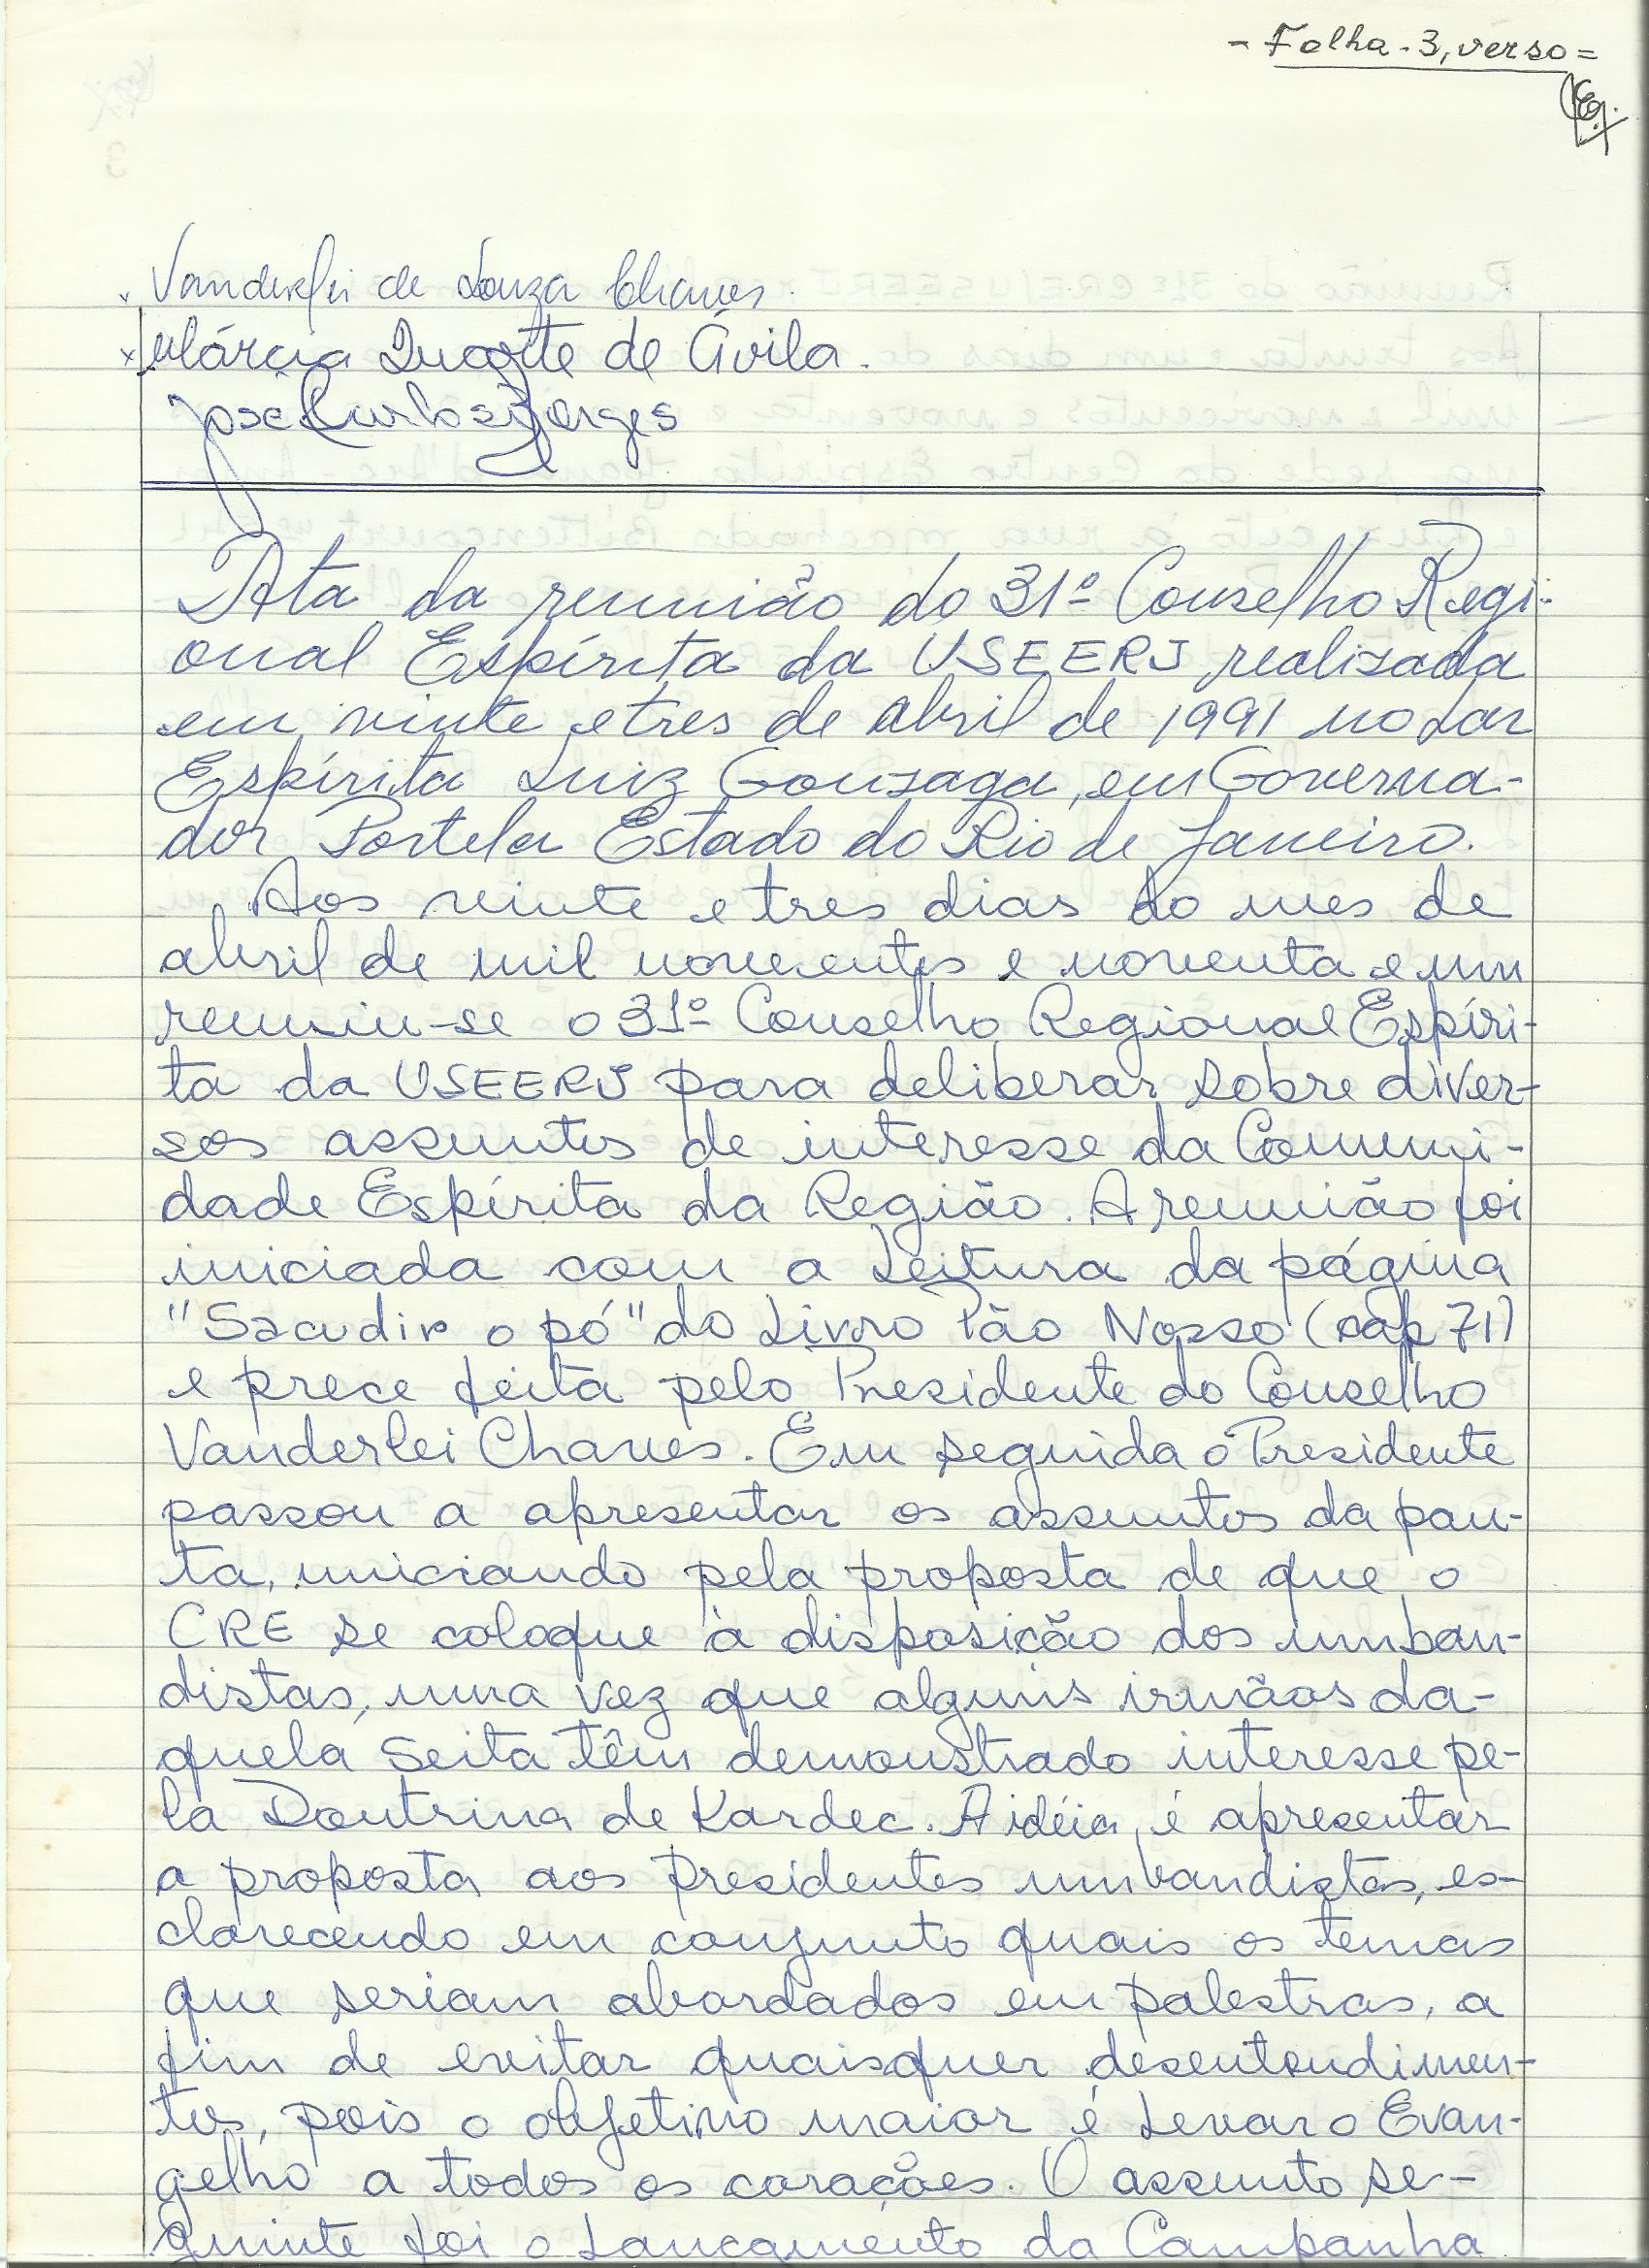 - Folha - 3, verso =
Vanderlei de Souza Chaves.
x Márcia Duarte de Ávila.
José Carlos Borges
Ata da reunião do 31º Conselho Regi-
onal Espírita da USEERJ realizada
em vinte e tres de abril de 1991 no Lar
Espírita Luiz Gonzaga, em Governa-
dor Portela Estado do Rio de Janeiro.
Aos vinte e tres dias do mes de
abril de mil novecentos e noventa e um
reuniu-se o 31º Conselho Regional Espíri-
ta da USEERJ para deliberar sobre diver-
sos assuntos de interesse da Comuni-
dade Espírita da Região. A reunião foi
iniciada com a Leitura da página
"Sacudir o pó" do Livro Pão Nosso (cap 71)
e prece feita pelo Presidente do Conselho
Vanderlei Chaves. Em seguida o Presidente
passou a apresentar os assuntos da pau-
ta, iniciando pela proposta de que o
CRE se coloque à disposição dos umban-
distas, uma vez que alguns irmãos da-
quela Seita têm demonstrado interesse pe-
la Doutrina de Kardec. A idéia, é apresentar
a proposta aos Presidentes umbandistas, es-
clarecendo em conjunto quais os temas
que seriam abordados em palestras, a
fim de evitar quaisquer desentendimen-
tos, pois o objetivo maior é Levar o Evan-
gelho a todos os corações. O assunto se-
guinte foi o Lançamento da Campanha